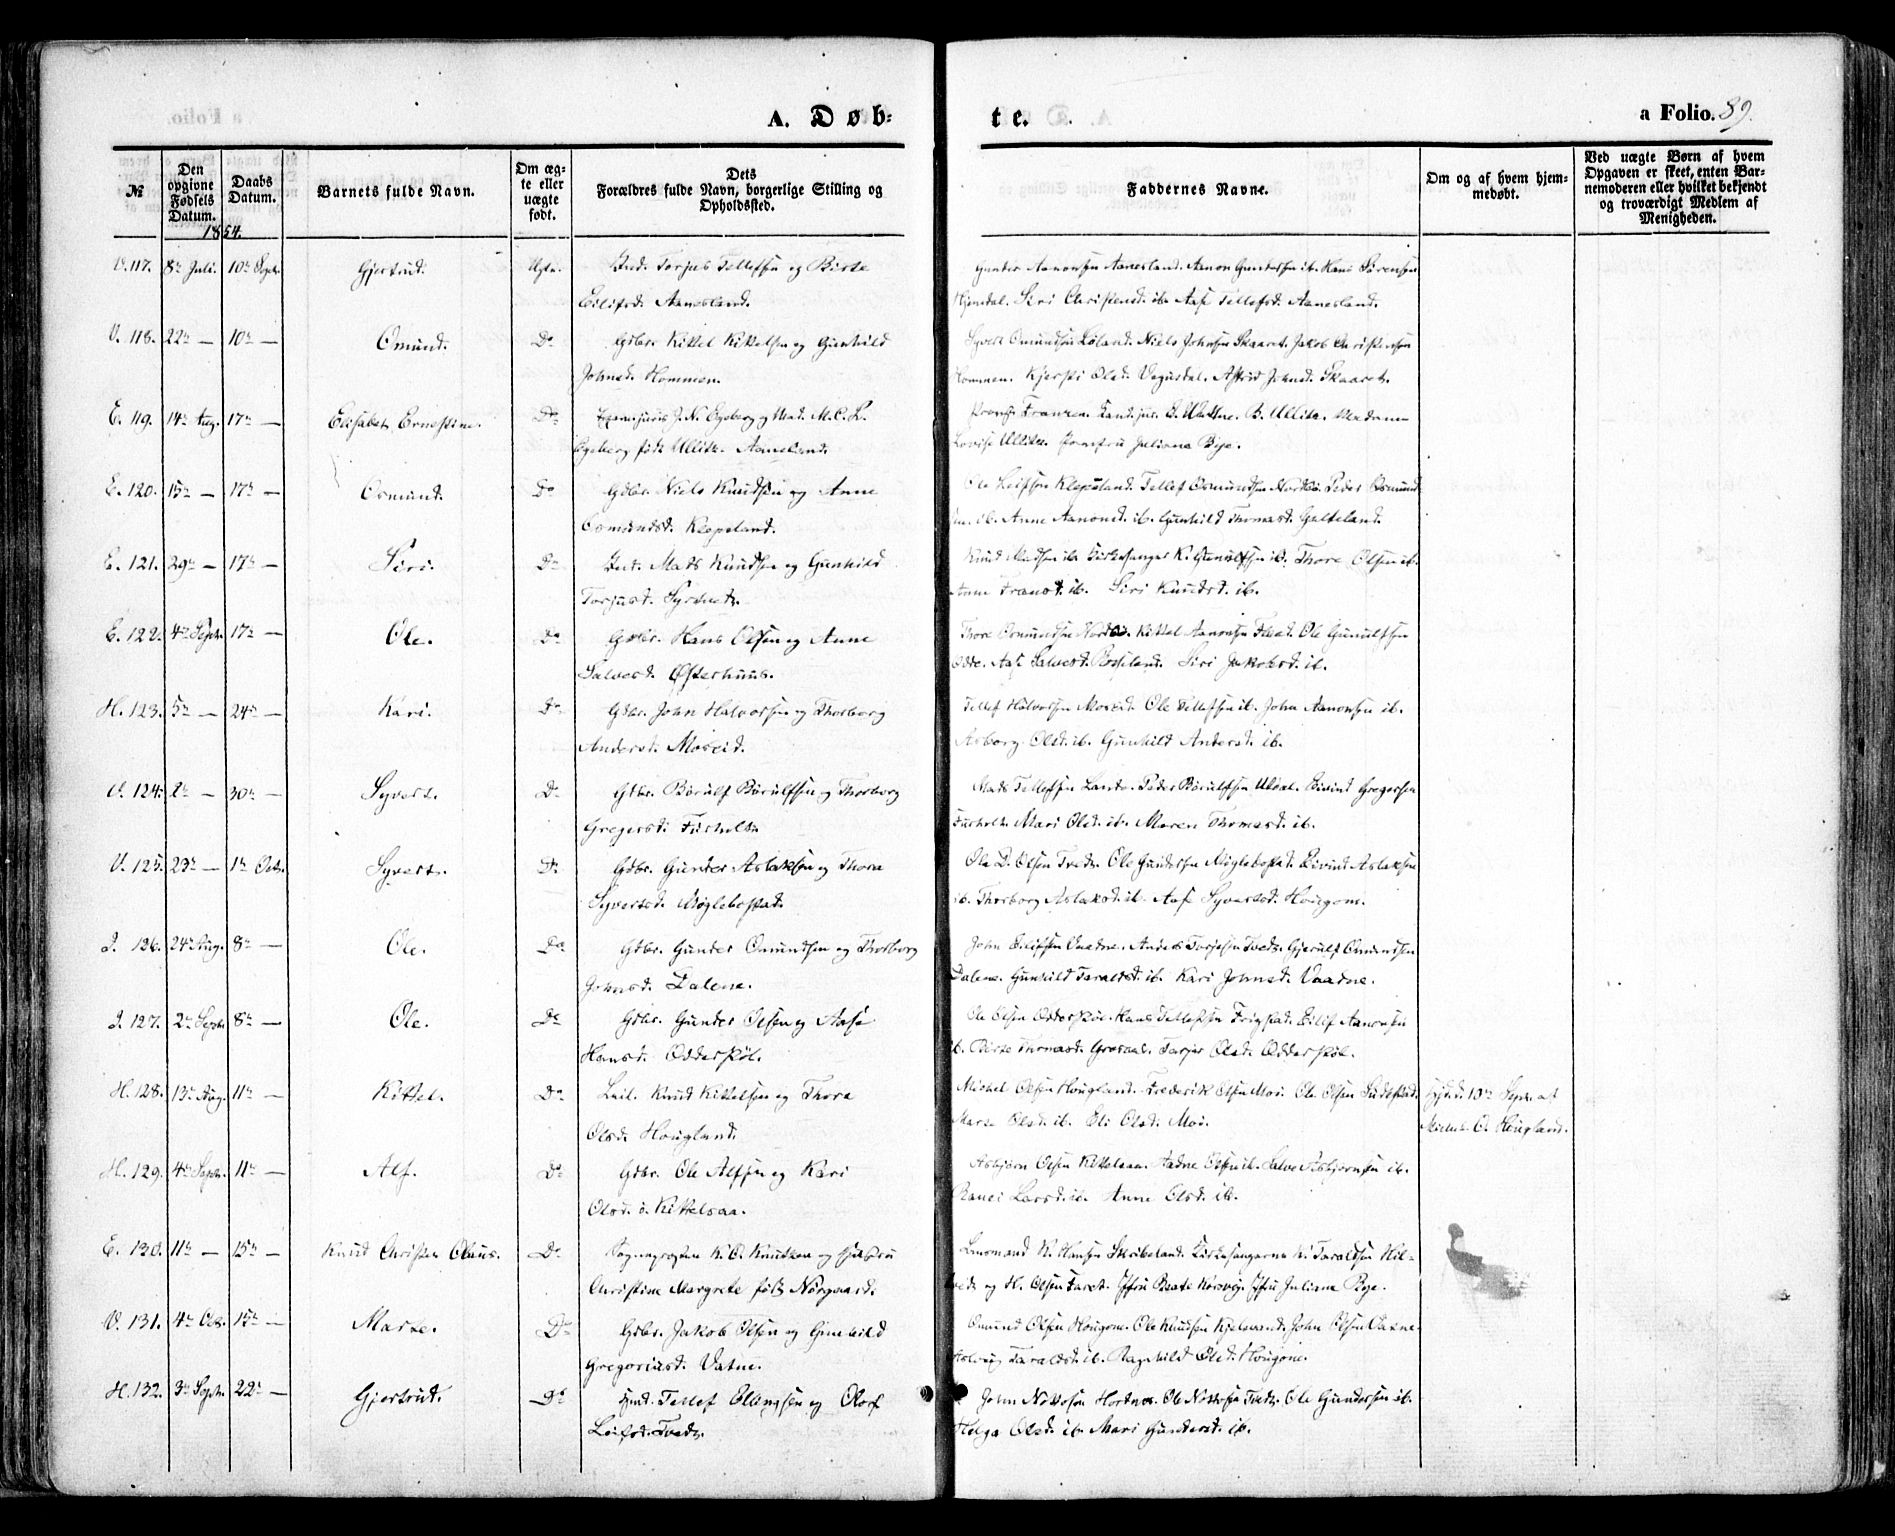 A. Døb=
te.
a Folio. 89.
№
Den opgivne Fødsels Datum.
Daabs Datum.
Barnets fulde Navn.
Om ægte eller uægte født.
Dets Forældres fulde Navn, borgerlige Stilling og Opholdssted.
Faddernes Navne.
Om og af hvem hjemmedøbt.
Ved uægte Børn af hvem Opgaven er skeet, enten Barnemoderen eller hvilket bekjendt og troværdigt Medlem af Menigheden.
1854.
V. 117. 8de Juli. 10de Septr. Gjertrud. Torjus Tellefsen og Birte
Eilifsd. Aanesland.
Gunder Aanonsen Aanesland. Aanon Gundersen ib. Hans Sørensen
Hjemdal. Siri Christensd. ib. Aase Tellefsd. Aanesland.
V. 118. 22de — 10de — Omund. Do Gdbr. Kittel Kittelsen og Gunhild
Johnsd. Hommen.
Syvert Omundsen Løland. Niels Johnsen Skaaret. Jakob Christensen
Hommen. Kjersti Olsd. Vegusdal. Astrid Johnsd. Skaaret.
E. 119. 14de Aug. 17de — Elisabet Ernestine. Do J. N. Egeberg og Mad. M. C. L.
Egeberg født Ullitz. Aaneland.
Franzen. Kand. jur. B. Ullitz. Madam
Lovise Ullitz. Jomfru Juliane Bye.
E. 120. 15de — 17de — Osmund. Do Gdbr. Niels Knudsen og Anne
Osmundsd. Klepeland.
Ole Leifsen Klepeland. Tellef Osmundsen Nordbø. Peder Osmund
sen ib. Anne Aanonsd. ib. Gunhild Thomasd. Galteland.
E. 121. 29de — 17de — Siri. Do Inds. Mads Knudsen og Gunhild
Torjusd. Syrtveit.
Knud Madsen ib. Kirkesanger K. Gunulfsen ib. Thore Olsen ib.
Anne Fransd. ib. Siri Knudsd. ib.
E. 122. 4de Septr. 17de — Ole. Do Gdbr. Hans Olsen og Anne
Salvesd. Østerhuus.
Thore Osmundsen Nordbø. Kittel Aanonsen Flaad. Ole Gunulfsen
Odde. Aase Salvesd. Siri Jakobsd. ib.
H. 123. 5te — 24de — Kari. Do Gdbr. John Halvorsen og Thorborg
Andersd. Moseid.
Tellef Halvorsen Moseid. Ole Tellefsen ib. John Aanonsen ib.
Asborg Olsd. ib. Gunhild Andersd. ib.
V. 124. 2de — 30te — Syvert. Do Gdbr. Børulf Børulfsen og Thorborg
Gregersd. Fuxholt.
Mads Tellefsen Lande. Peder Børulfsen Uldal. Eivind Gregersen
Fuxholt. Mari Olsd. ib. Maren Thomasd. ib.
V. 125. 23de — 1ste Octr. Syvert. Do Gdbr. Gunder Aslaksen og Thora
Syvertsd. Møglebostad.
Ole D. Olsen Tvedt. Ole Gundersen Møglebostad. Eivind Aslaksen
ib. Thorborg Aslaksd. ib. Aase Syvertsd. Hougom.
I. 126. 24de Aug. 8de — Ole. Do Gdbr. Gunder Omundsen og Thorborg
Johnsd. Dalene.
John Eilifsen Vaadne. Anders Torjesen Tvedt. Gjerulf Omundsen
Dalene. Gunhild Taraldsd. ib. Kari Johnsd. Vaadne.
I. 127. 2de Septr. 8de — Ole. Do Gdbr. Gunder Olsen og Aase
Hansd. Odderskøl.
Ole Olsen Odderskøl. Hans Tellefsen Frigstad. Eilif Aanonsen
ib. Birte Thomasd. Grosaas. Olsd. Odderskøl.
H. 128. 13de Aug. 11te — Kittel. Do Leil. Knud Kittelsen og Thora
Olsd. Hougland.
Michel Olsen Hougland. Frederik Olsen Moi. Ole Olsen
Marte Olsd. ib. Eli Olsd. Moi.
Hjd. d. 10de Septr. af
Michel O. Hougland.
H. 129. 4de Septr. 11te — Alf. Do Gdbr. Ole Alfsen og Kari
Olsd. Kittelsaa.
Asbjørn Olsen Kittelsaa. Aadne Olsen ib. Salve Asbjørnsen ib.
Ranei Larsd. ib. Anne Olsd. ib.
E. 130. 11te — 15de — Knud Christen Claus. Do Sognepresten K. C. Knutzen og Hustru
Christine Margrete født Nørgaard.
Lensmand K. Hansen Skribeland. Kirkesangerne K. Taraldsen
og H. Olsen Faret. Jfru Beate Jfru Juliane Bye.
V. 131. 4de Oct. 15de — Marte. Do Gdbr. Jakob Olsen og Gunhild
Gregoriusd. Vatne.
Omund Olsen Hougone. Ole Knudsen John Olsen Vatne.
Taraldsd. ib. Ragnhild Olsd. Hougone.
H. 132. 3de Septr. 22de — Gjertrud. Do Tellef og
Leifsd. Tvedt.
John Nottosen Hodnes. Ole Nottosen Tvedt. Ole Gundersen ib.
Helga Olsd. ib. Mari Gundersd. ib.